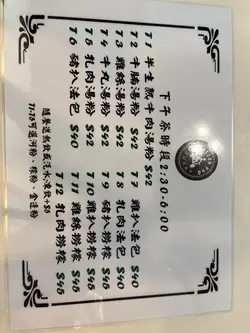 下午茶時段2:30-6:00
T1 半生熟牛肉湯粉 $42
T2 牛腩湯粉 $42
T3 雞絲湯粉 $42
T4 牛丸湯粉 $42
T5 扎肉湯粉 $42
T6 豬扒法包 $40
T7 雞扒法包 $40
T8 扎肉法包 $40
T9 豬扒撈檬 $45
T10 雞扒撈檬 $45
T11 雞絲撈檬 $45
T12 扎肉撈檬 $45
隨餐送熱飲或汽水,凍飲+$3
T1-T5可選河粉、檬粉、金邊粉